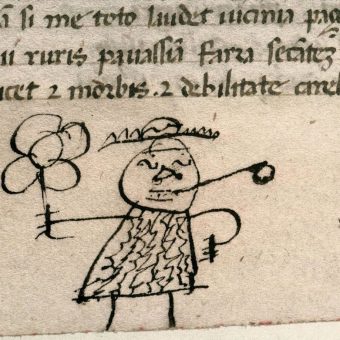 ā si me toto laudet uicinia pag
ii ruris prauassū Farra secātez
icet ⁊ morbis · ⁊ debilitate careb